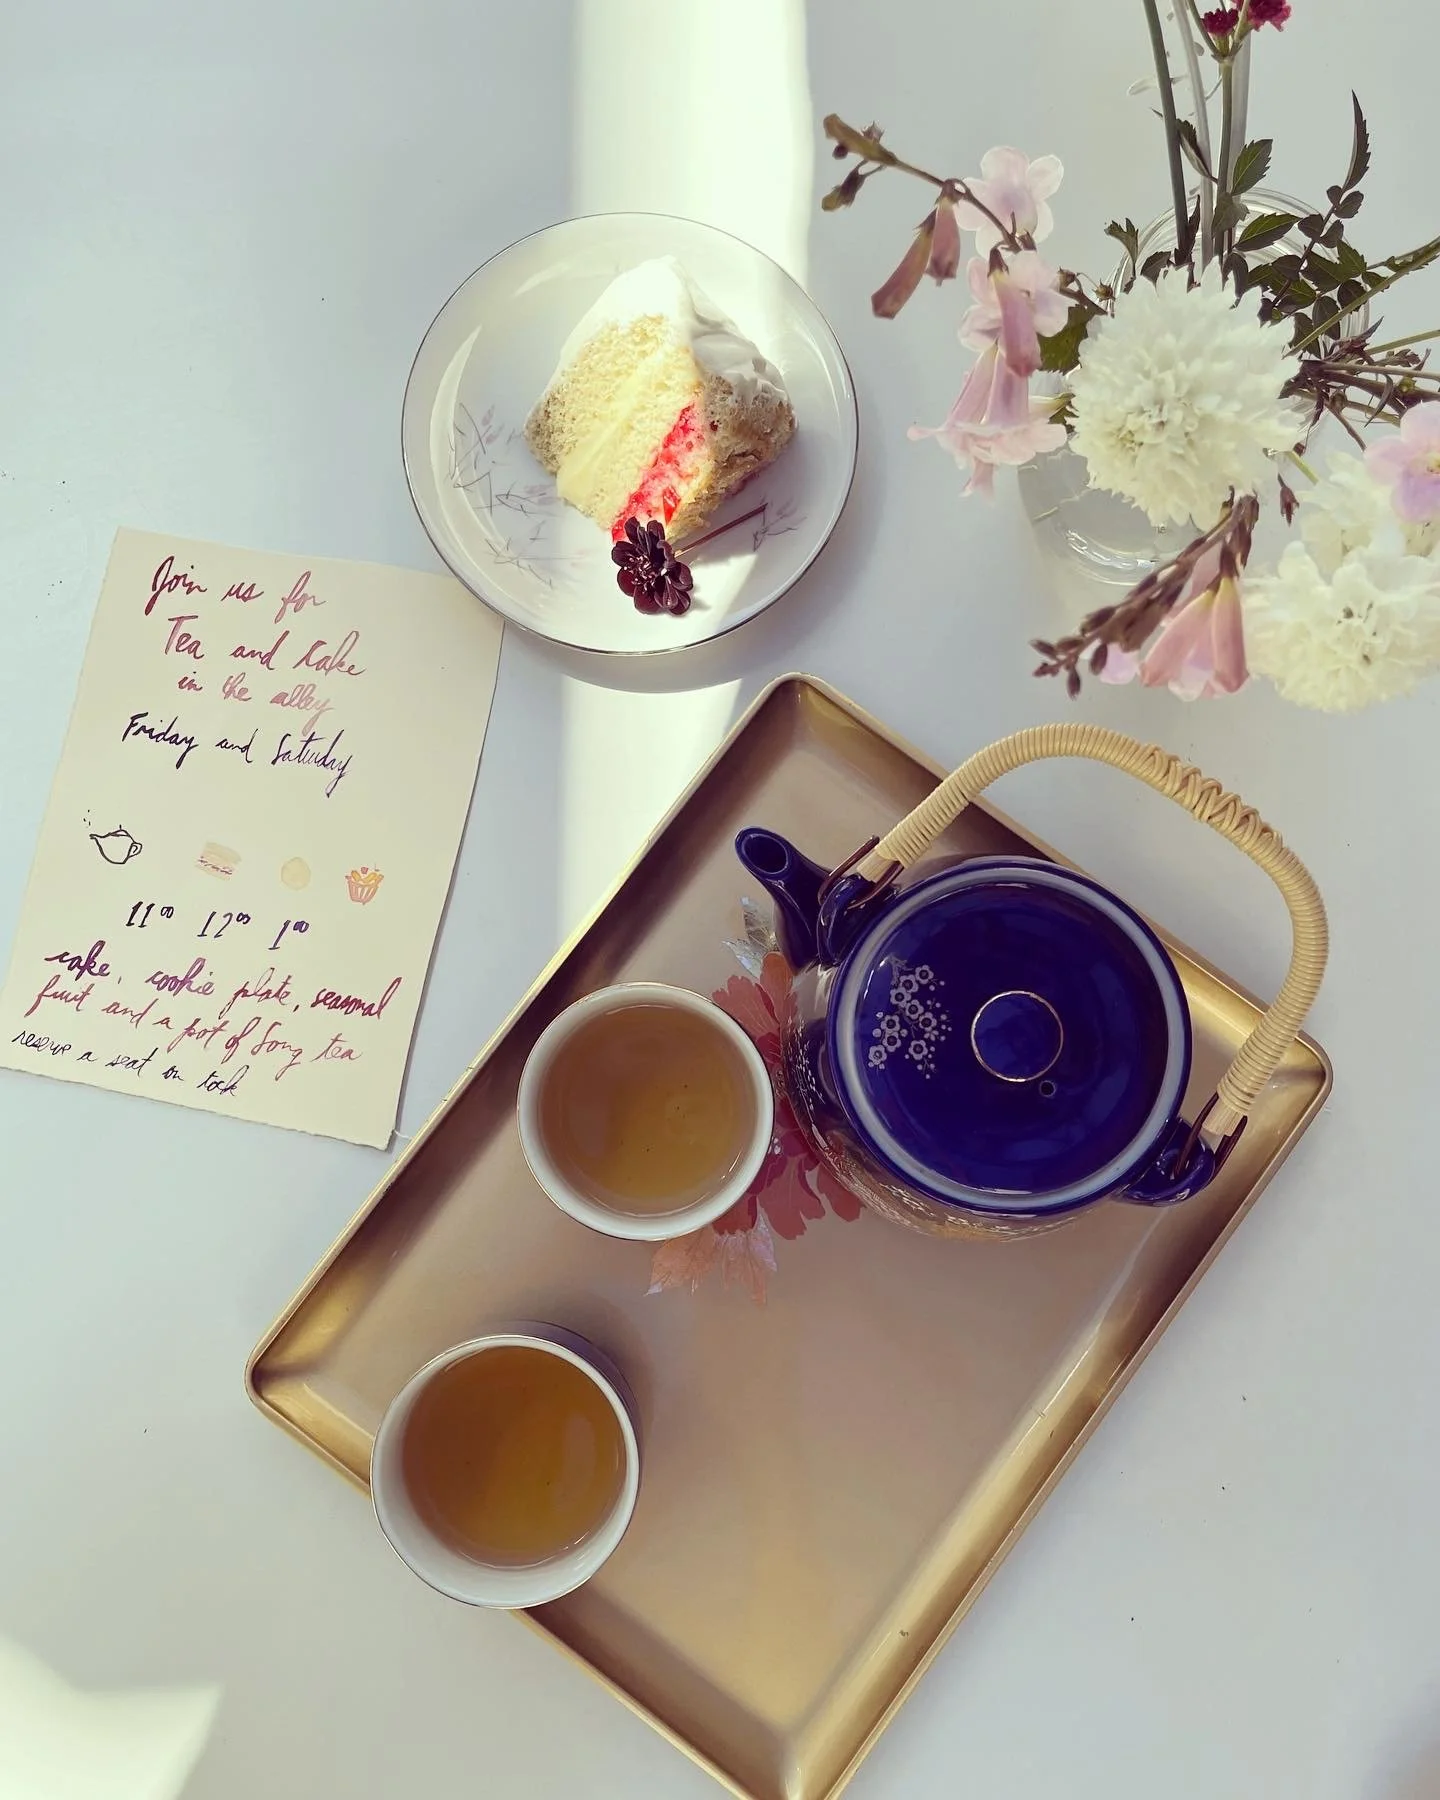 Join us for
Tea and Cake
in the alley
Friday and Saturday
11⁰⁰ 12⁰⁰ 1⁰⁰
cake, cookie plate, seasonal
fruit and a pot of Song tea
reserve a seat on tock